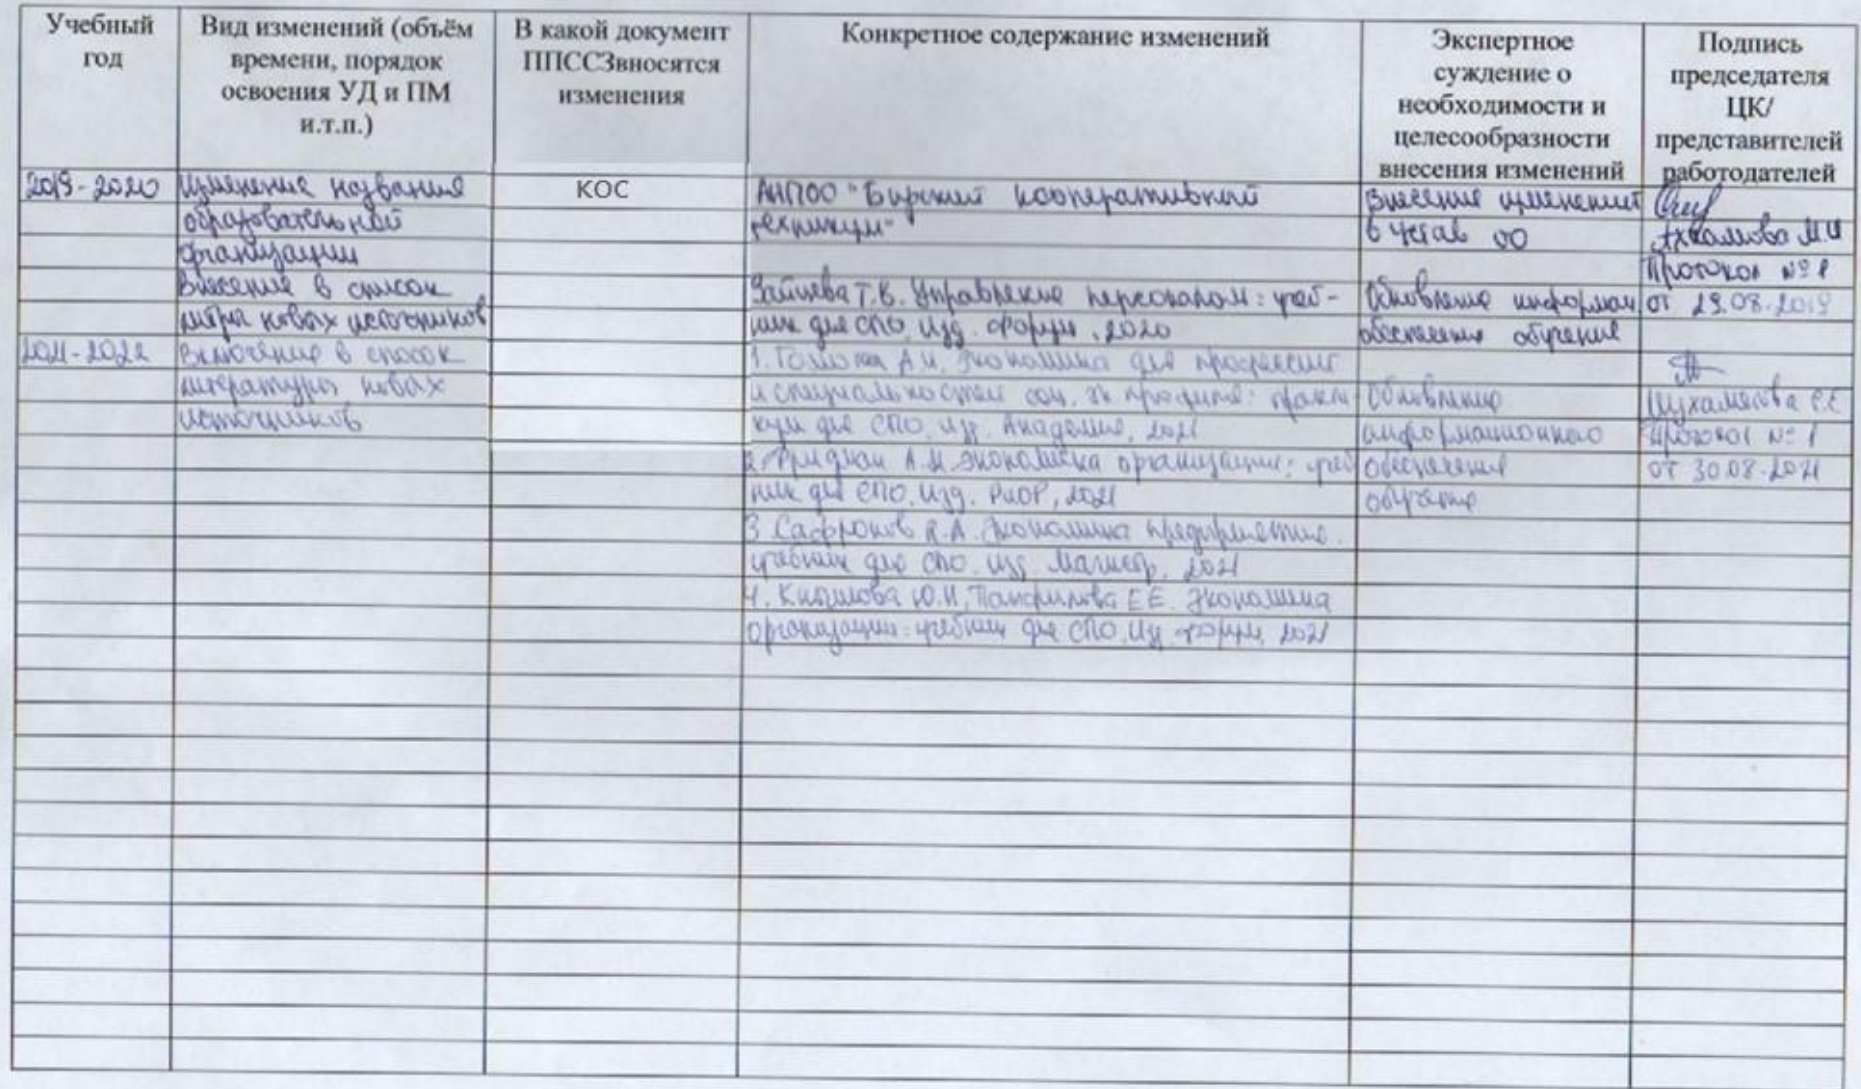 Учебный
год
Вид изменений (объём
времени, порядок
освоения УД и ПМ
и.т.п.)
В какой документ
ППССЗвносятся
изменения
Конкретное содержание изменений
Экспертное
суждение о
необходимости и
целесообразности
внесения изменений
Подпись
председателя
ЦК/
представителей
работодателей
2019-2020
Изменение названия
образовательной
организации
КОС
АНПОО "Бирский кооперативный
техникум"
Внесение изменений
в Устав ОО
Ахкамова М.И
Протокол №1
от 29.08.2019
Внесение в список
лит-ры новых источников
Зайцева Т.В. Управление персоналом: учеб-
ник для СПО, изд. Форум, 2020
Обновление информац
обеспечения обучения
2021-2022
Включение в список
литературы новых
источников
1. Гомола А.И. Экономика для профессий
и специальностей соц. эк профиля: практи
кум для СПО, изд. Академия, 2021
2. Фридман А.М. Экономика организации: учеб
ник для СПО. Изд. РИОР, 2021
3 Сафронов Н.А. Экономика предприятия.
учебник для СПО. изд Магистр, 2021
4. Кнышова Ю.Н, Панфилова Е.Е. Экономика
организации: учебник для СПО. Изд. Форум, 2021
Обновление
информационного
обеспечения
обучения
Протокол №1
от 30.08.2021